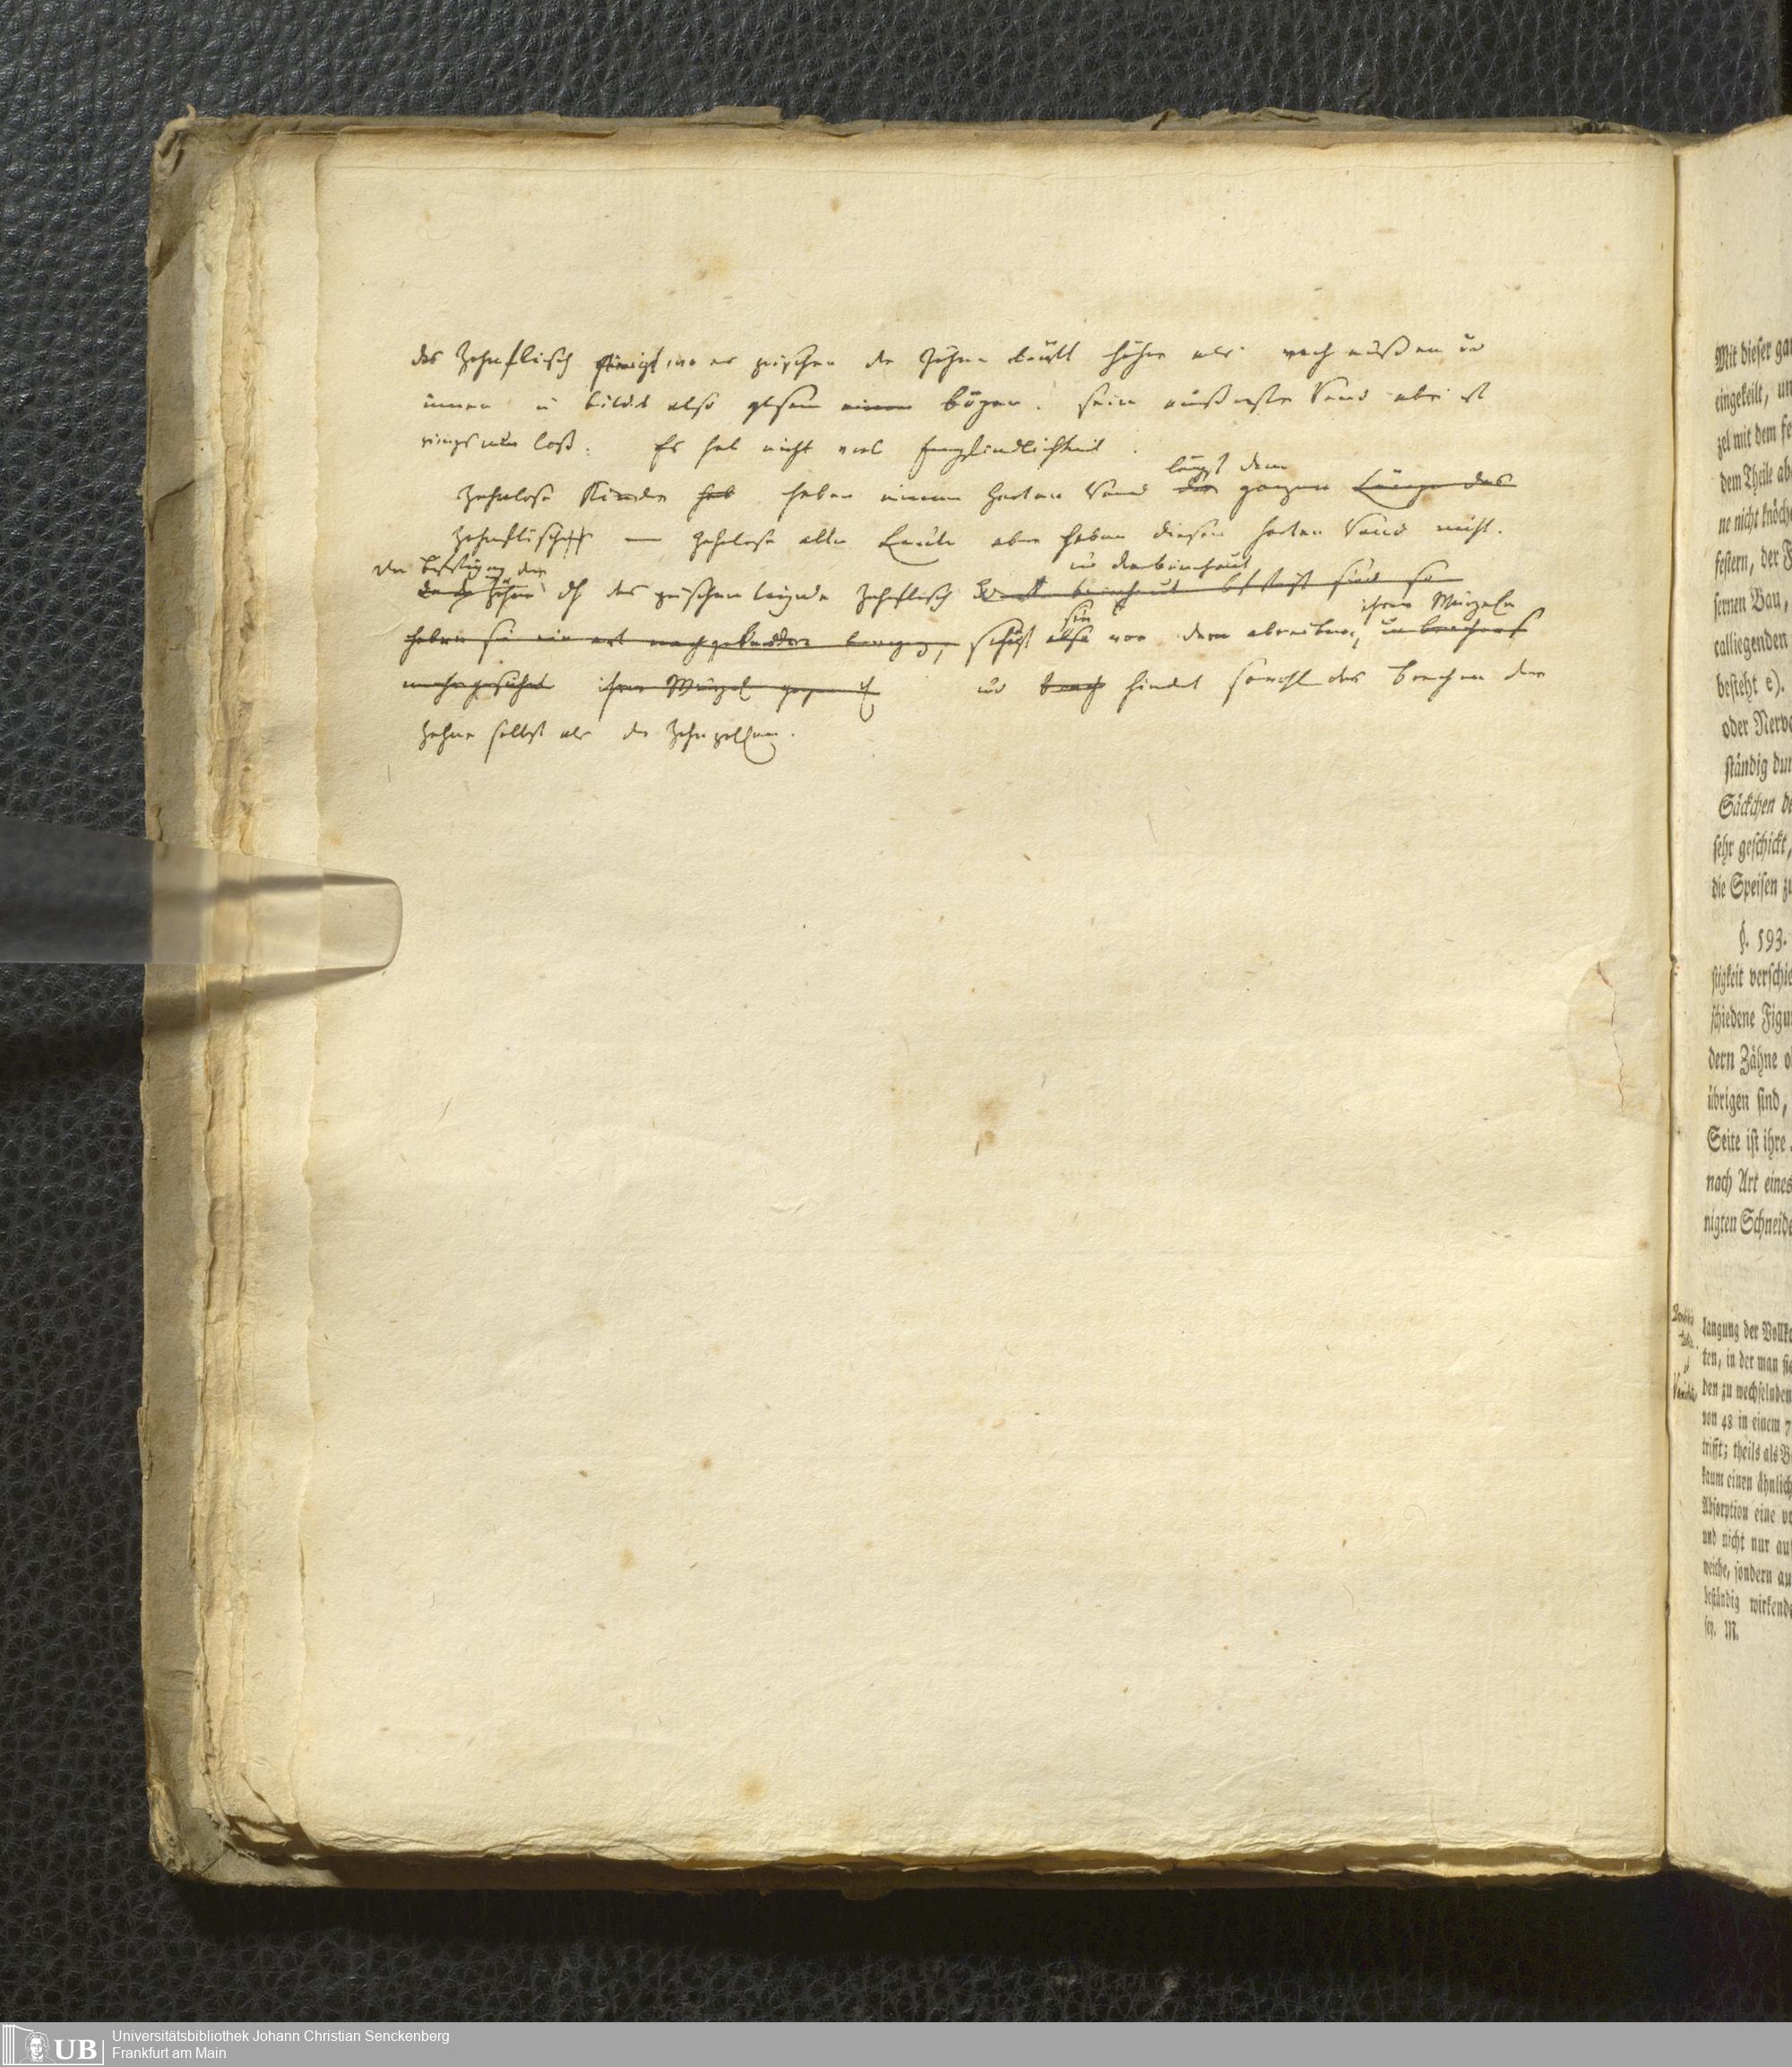 das Zahnfleisch steigt wo es zwischen die Zähne läuft höher als nach außen ūd
innen u bildet also gleichsam einen bögen. sein äußerster Rand aber ist
rings um loß. Es hat nicht viel Empfindlichkeit.
längst dem
Zahnlose Kinder hab haben einen harten Rand der ganzen Länge des
Zahnfleisches — Zahnlose alte Leute aber haben diesen harten Rand nicht.
Die Befestigung der ūd die beinhaut
Zähne dch das zwischen liegende Zahnfleisch beinhaut befestigt sind so
sie ihren Wurzeln
haben sie ein art nachgebender schüzt also vor dem abreiben,
ihrer Wurzel ūd hindert sowohl das brechen der
Zähne selbst als der Zahnzellen.
Mit dieser gan
eingekeilt, un
zel mit dem fe
dem Theile ab
ne nicht knöch
festern, der F
sernen Bau,
calliegenden
besteht e).
oder Nerve
ständig dur
Säckchen de
sehr geschickt,
die Speisen zu
§. 593.
stigkeit verschie
schiedene Figu
dern Zähne o
übrigen sind,
Seite ist ihre
nach Art eines
nigten Schneide
langung der Vollk
ten, in der man sie
den zu wechselnden
von 48 in einem 7
trifft; theils als B
kaum einen ähnlich
Absorption eine v
und nicht nur au
weiche, sondern au
beständig wirkende
sey. M.
UB
Universitätsbibliothek Johann Christian Senckenberg
Frankfurt am Main